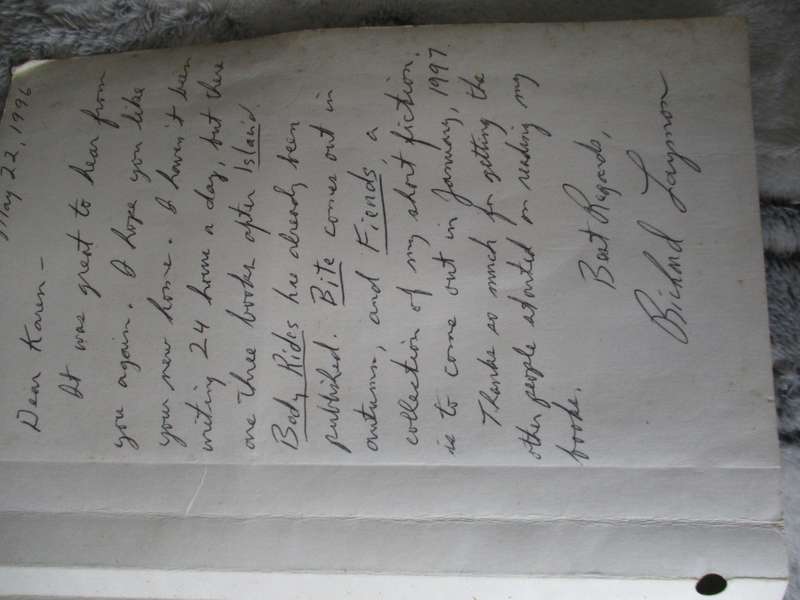 May 22, 1996
Dear Karen -
It was great to hear from
you again. I hope you like
your new home. I haven't been
writing 24 hours a day, but there
are three books after Island.
Body Rides has already been
published. Bite comes out in
autumn, and Fiends, a
collection of my short fiction,
is to come out in January, 1997.
Thanks so much for getting the
other people started on reading my
books.
Best Regards,
Richard Laymon